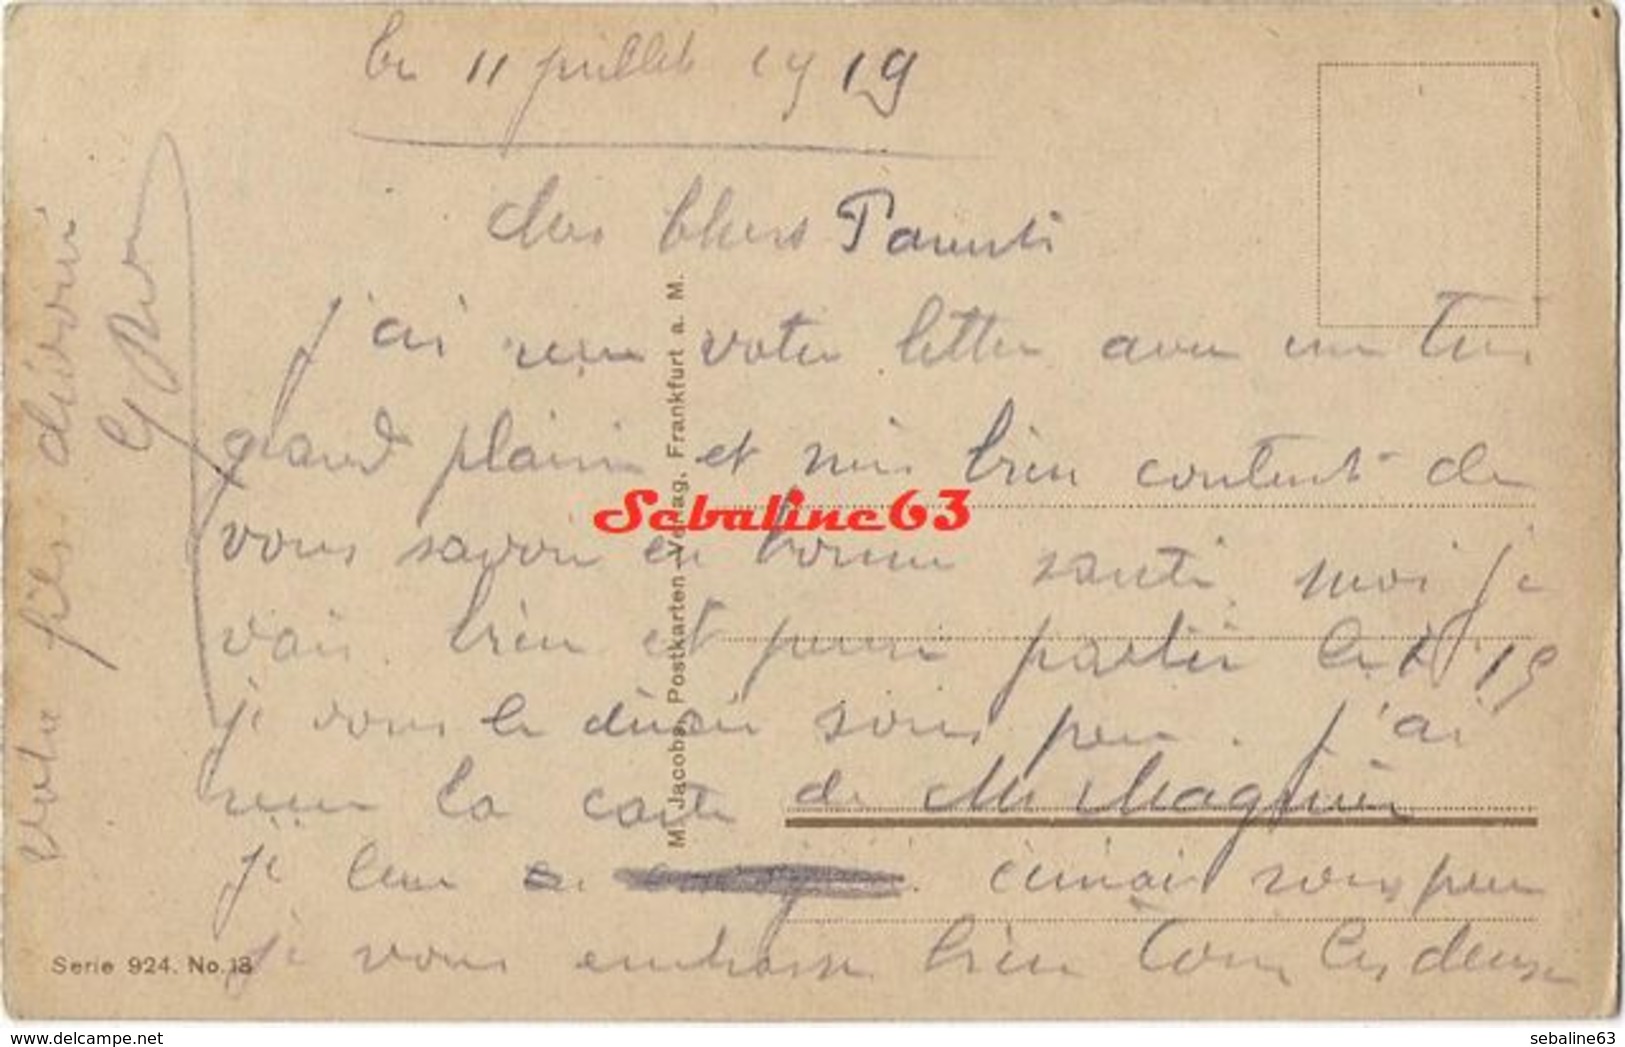 le 11 juillet 1919
Mes Chers Parents
j'ai reçu votre lettre avec un très
grand plaisir et suis bien content de
vous savoir en bonne santé moi je
vais bien et pense partir le 19
je vous le dirai sous peu. j'ai
reçu la carte de Mr Magnin
je leur écrirais sous peu
je vous embrasse bien tous les deux
Votre fils dévoué
M. Jacobs, Postkarten-Verlag, Frankfurt a. M.
Serie 924. No. 13
Sebaline63
delcampe.net
sebaline63